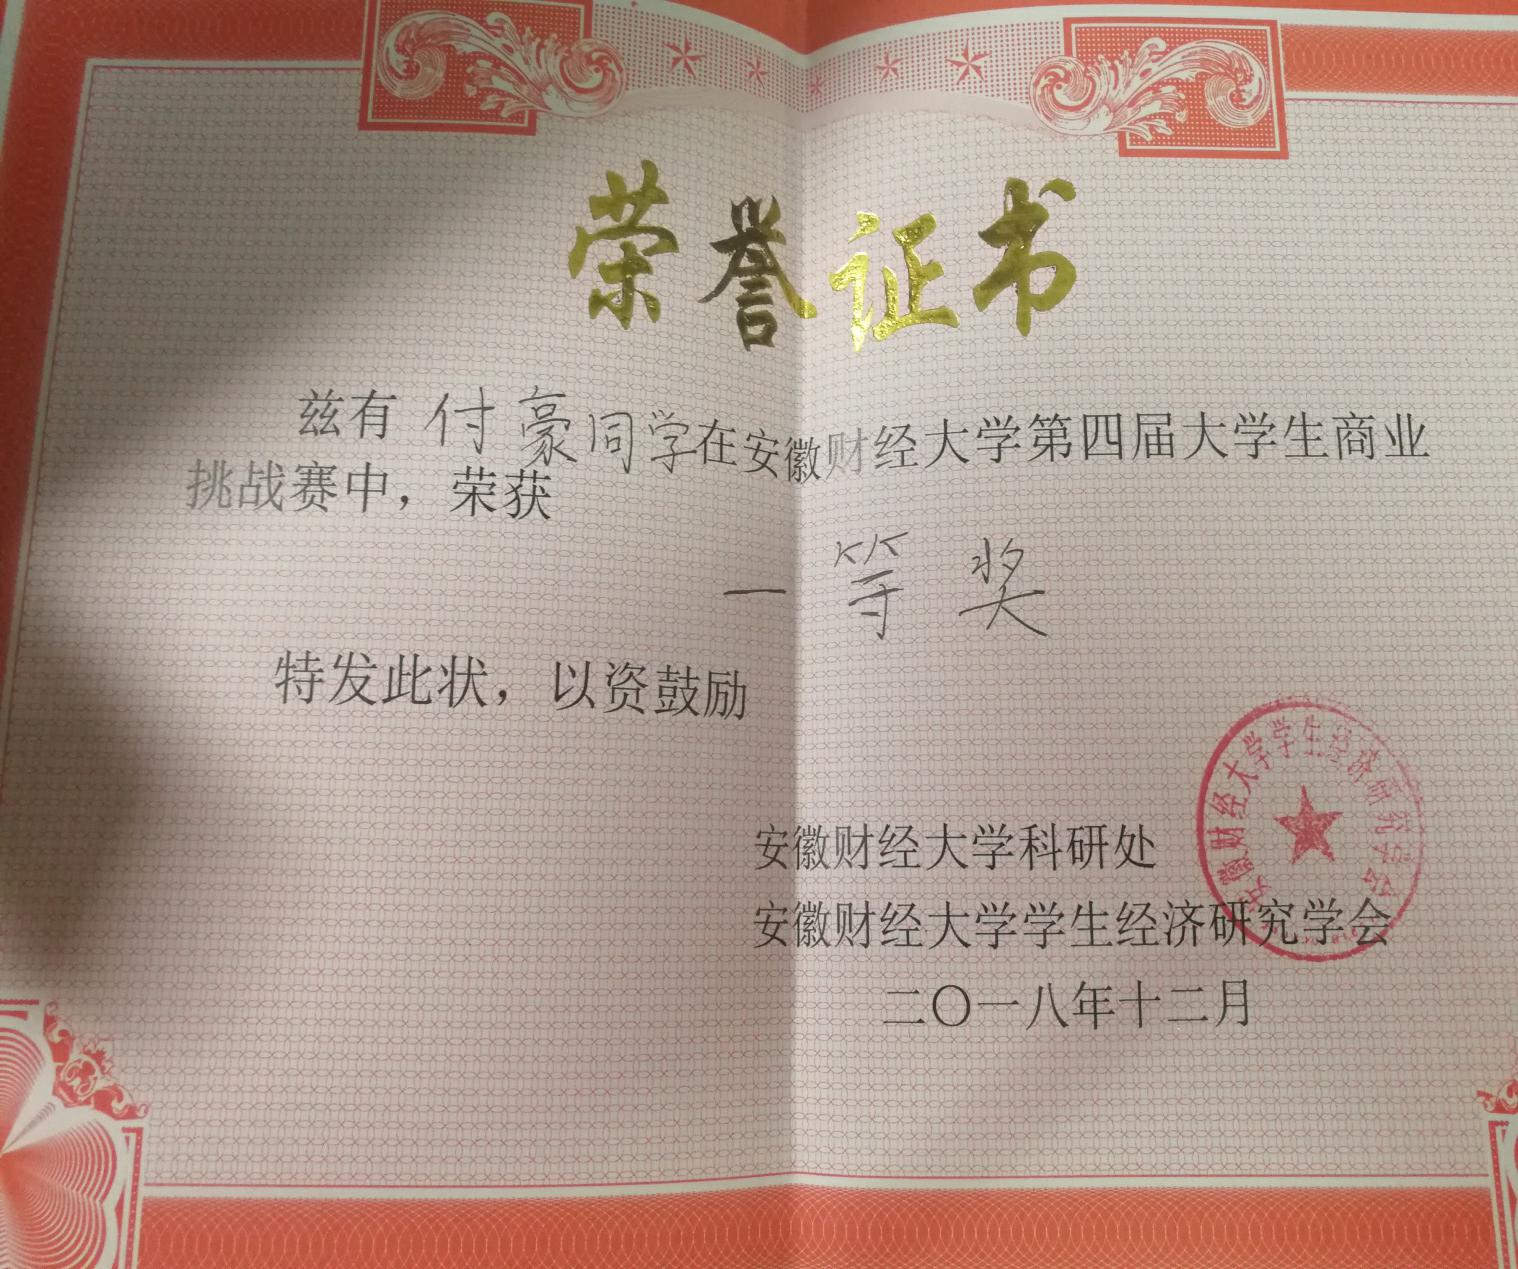 荣誉证书
兹有 付豪同学在安徽财经大学第四届大学生商业
挑战赛中，荣获
一等奖
特发此状，以资鼓励
安徽财经大学科研处
安徽财经大学学生经济研究学会
二〇一八年十二月
安徽财经大学学生经济研究学会